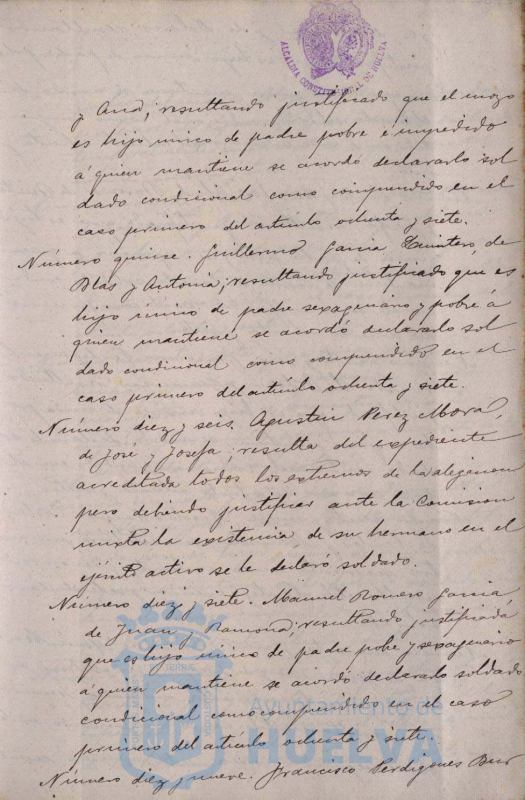 ALCALDIA CONSTITUCIONAL DE HUELVA
y Ana; resultando justificado que el mozo
es hijo único de padre pobre é impedido
á quien mantiene se acordó declararlo sol
dado condicional como comprendido en el
caso primero del artículo ochenta y siete.
Número quince. Guillermo Garcia Quintero, de
Blas y Antonia; resultando justificado que es
hijo único de padre sexagenario y pobre á
quien mantiene se acordó declararlo sol
dado condicional como comprendido en el
caso primero del artículo ochenta y siete.
Número diez y seis. Agustin Perez Mora,
de José y Josefa; resulta del expediente
acreditada todos los extremos de la alegacion
pero debiendo justificar ante la Comision
mixta la existencia de su hermano en el
ejército activo se le declaró soldado.
Número diez y siete. Manuel Romero Garcia
de Juan y Ramona; resultando justificada
que es hijo único de padre pobre y sexagenario
á quien mantiene se acordó declararlo soldado
condicional como comprendido en el caso
primero del artículo ochenta y siete.
Ayuntamiento de
HUELVA
Número diez y nueve. Francisco Perdigones